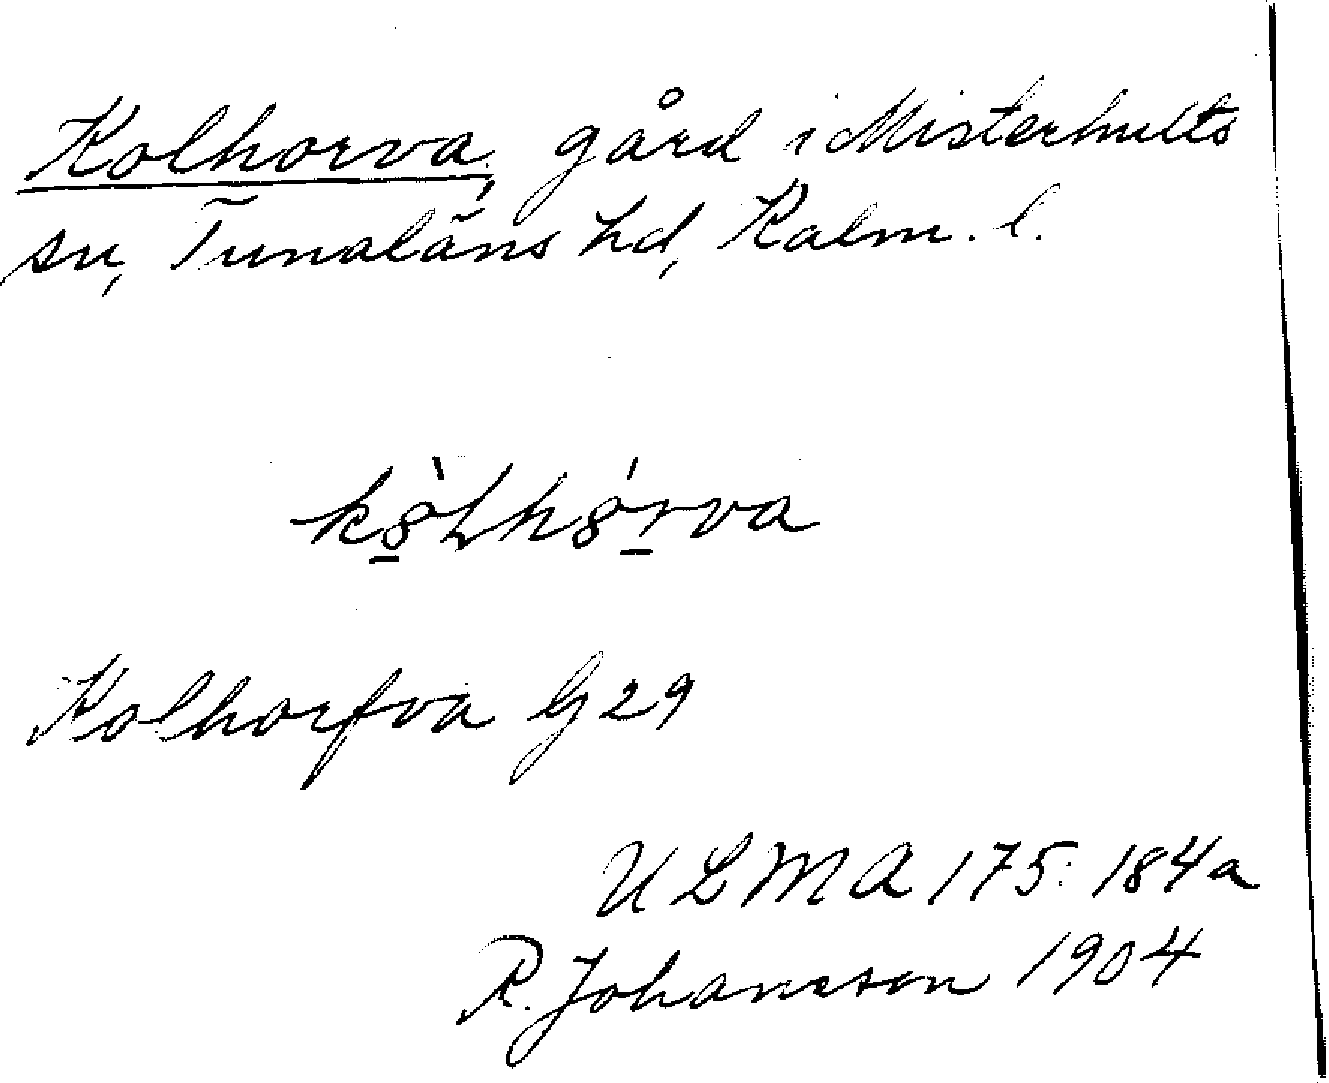 Kolhorva, gård i Misterhults
sn, Tunaläns hd, Kalm. l.
Kolhorfva G 29
ULMA 175: 184a
R. Johansson 1904